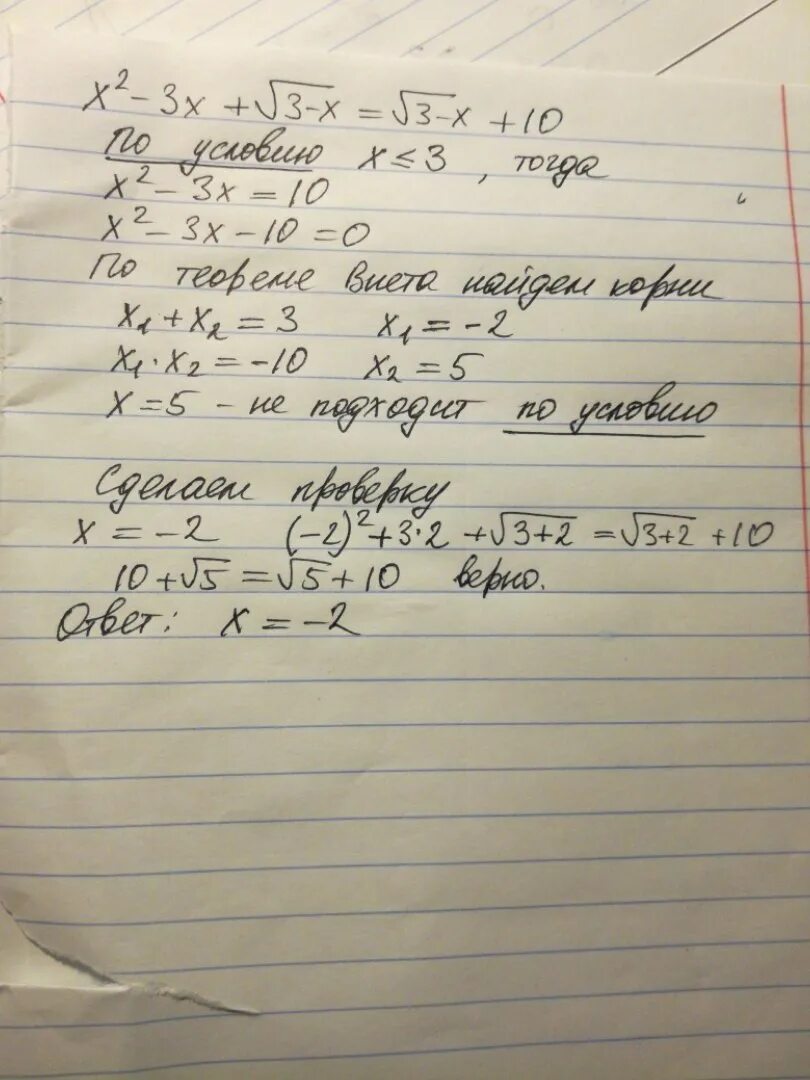 x² - 3x + √3-x = √3-x + 10
По условию x ≤ 3 , тогда
x² - 3x = 10
x² - 3x - 10 = 0
По теореме Виета найдем корни
x₁ + x₂ = 3 x₁ = -2
x₁ · x₂ = -10 x₂ = 5
x = 5 - не подходит по условию
Сделаем проверку
x = -2 (-2)² + 3·2 + √3+2 = √3+2 + 10
10 + √5 = √5 + 10 верно.
Ответ: x = -2